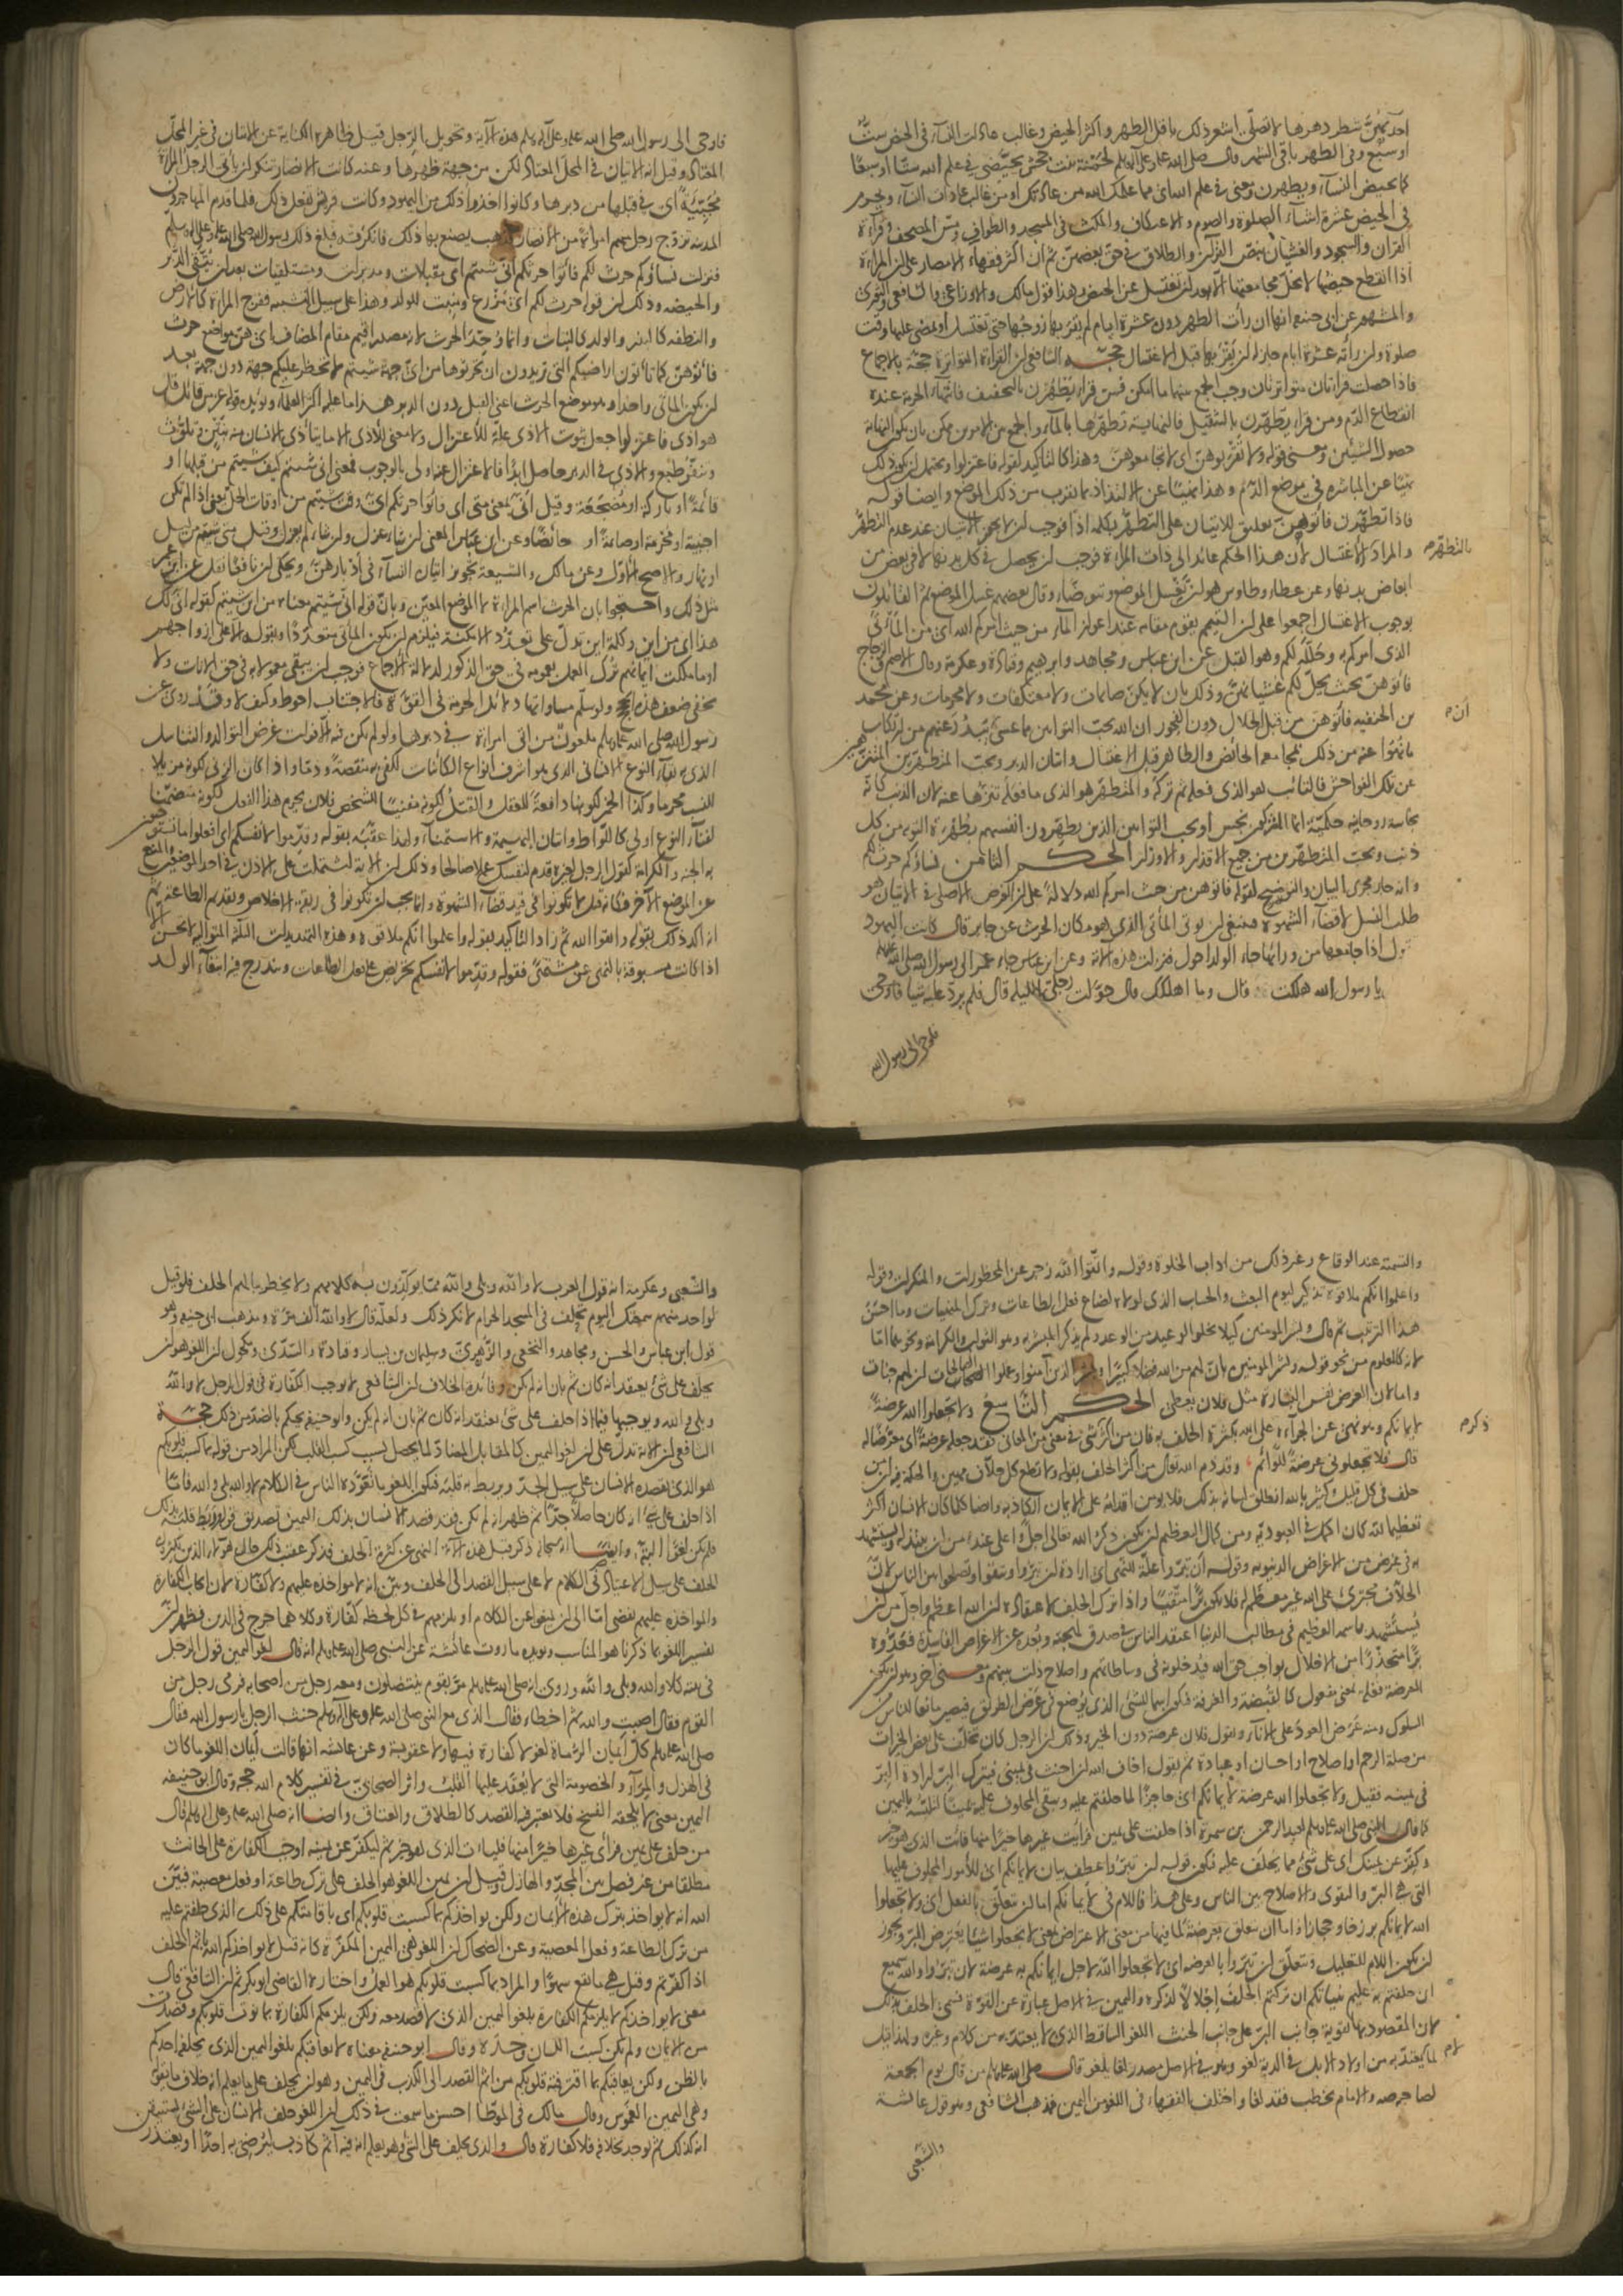 احد يكن شطر دهرها لا تصلي اشعر ذلك باقل الطهر واكثر الحيض وغالب عادات النساء في الحيض ست
او سبع وفي الطهر باقي الشهر قال صلى الله عليه وعلى آله وسلم لحمنة بنت جحش تحيضي في علم الله ستا او سبعا
كما تحيض النساء ويطهرن ومعنى في علم الله اى مما علمك الله من عادتك او من غالب عادات النساء ويحرم
في الحيض عشرة اشياء الصلوة والصوم والاعتكاف والمكث في المسجد والطواف ومس المصحف وقراءة
القران والسجود والغشيان بنص القران والطلاق في حق بعضهن ثم ان اكثر فقهاء الامصار على ان المراة
اذا انقطع حيضها لا يحل مجامعتها الا بعد ان تغتسل عن الحيض وهذا قول مالك والاوزاعي والشافعي والثوري
والمشهور عن ابي حنيفة انها ان رأت الطهر دون عشرة ايام لم يقربها زوجها حتى تغتسل او يمضي عليها وقت
صلوة وان رأته عشرة ايام جاز له ان يقربها قبل الاغتسال حجة الشافعي ان القراءة المتواترة حجة بالاجماع
فاذا حصلت قراءتان متواترتان وجب الجمع بينهما ما امكن فمن قرأ يطهرن بالتخفيف فانتهاء الحرمة عنده
انقطاع الدم ومن قرأ يطهرن بالتثقيل فالنهاية تطهرها بالماء والجمع بين الامرين ممكن بان يكون النهاية
حصول الشيئين ومعنى قوله ولا تقربوهن اى لا تجامعوهن وهذا كالتاكيد لقوله فاعتزلوا ويحتمل ان يكون ذلك
نهيا عن المباشرة في موضع الدم وهذا نهيا عن الالتذاذ بما يقرب من ذلك الموضع وايضا قوله
فاذا تطهرن فاتوهن تعليق للاتيان على التطهر بكلمة اذا فوجب ان لا يجوز الاتيان عند عدم التطهر
والمراد بالتطهر الاغتسال لان هذا الحكم عائد الى ذات المراة فوجب ان يحصل في كل بدنها لا في بعض من
ابعاض بدنها وعن عطاء وطاوس هو ان تغسل الموضع وتتوضأ وقال بعضهم غسل الموضع ثم القائلون
بوجوب الاغتسال اجمعوا على ان التيمم يقوم مقامه عند اعواز الماء من حيث امركم الله اى من المأتى
الذى امركم به وحلله لكم وهو القبل عن ابن عباس ومجاهد وابرهيم وقتادة وعكرمة وقال الاصم والزجاج
فاتوهن بحيث يحل لكم غشيانهن وذلك بان لا يكن صائمات ولا معتكفات ولا محرمات وعن محمد
بن الحنفية فاتوهن من قبل الحلال دون الفجور ان الله يحب التوابين مما عسى يبدر عنهم من ارتكاب
ما نهوا عنه من ذلك كمجامعة الحائض والطاهر قبل الاغتسال واتيان الدبر ويحب المتطهرين المتنزهين
عن تلك الفواحش فالتائب هو الذى فعله ثم تركه والمتطهر هو الذى ما فعله تنزها عنه لان الذنب كانه
نجاسة روحانية حكمية انما المشركون نجس او يحب التوابين الذين يطهرون انفسهم بطهرة التوبة من كل
ذنب ويحب المتطهرين من جميع الاقذار والاوزار الحكم الثامن نساؤكم حرث لكم
وانه جار مجرى البيان والتوضيح لقوله فاتوهن من حيث امركم الله دلالة على ان الغرض الاصلي في الاتيان هو
طلب النسل لا قضاء الشهوة فينبغي ان يوتى المأتى الذى هو مكان الحرث عن جابر قال كانت اليهود
تقول اذا جامعها من ورائها جاء الولد احول فنزلت هذه الآية وعن ابن عباس جاء عمر الى رسول الله صلى الله عليه
يا رسول الله هلكت قال وما اهلكك قال حولت رحلى الليلة قال فلم يرد عليه شيا فاوحى
فاوحى الى رسول الله
فاوحى الى رسول الله صلى الله عليه وعلى آله وسلم هذه الآية وتحويل الرحل قيل ظاهره الكناية عن الاتيان في غير المحل
المعتاد وقيل انه الاتيان في المحل المعتاد لكن من جهة ظهرها وعنه كانت الانصار تنكر ان ياتى الرجل المراة
مجبية اى في قبلها من دبرها وكانوا اخذوا ذلك من اليهود وكانت قريش تفعل ذلك فلما قدم المهاجرون
المدينة تزوج رجل منهم امراة من الانصار فذهب يصنع بها ذلك فانكرته فبلغ ذلك رسول الله صلى الله عليه وعلى آله وسلم
فنزلت نساؤكم حرث لكم فاتوا حرثكم انى شئتم اى مقبلات ومدبرات ومستلقيات بعد ان يتقي الدبر
والحيضة وذلك ان قوله حرث لكم اى مزرع ومنبت للولد وهذا على سبيل التشبيه ففرج المراة كالارض
والنطفة كالبذر والولد كالنبات وانما وحد الحرث لانه مصدر اقيم مقام المضاف اى هن مواضع حرث
فاتوهن كما تأتون اراضيكم التى تريدون ان تحرثوها من اى جهة شئتم لا يحظر عليكم جهة دون جهة بعد
ان يكون المأتى واحدا وهو موضع الحرث اعنى القبل دون الدبر هذا ما عليه اكثر العلماء ويؤيده قوله عز من قائل قل
هو اذى فاعتزلوا جعل ثبوت الاذى علة للاعتزال ولا معنى للاذى الا ما يتاذى الانسان منه بنتن وتلوث
وتنفر طبع والاذى في الدبر حاصل ابدا فالاعتزال عنه اولى بالوجوب فمعنى انى شئتم كيف شئتم من قبلها او
قائمة او باركة او مضطجعة وقيل انى بمعنى متى اى فاتوا حرثكم اى وقت شئتم من اوقات الحل يعنى اذا لم تكن
اجنبية او محرمة او صائمة او حائضا وعن ابن عباس المعنى ان شاء عزل وان شاء لم يعزل وقيل متى شئتم من ليل
او نهار والاصح الاول وعن مالك والشيعة تجويز اتيان النساء في ادبارهن ويحكى ان نافعا نقل عن ابن عمر
مثل ذلك واحتجوا بان الحرث اسم المراة لا الموضع المعين وبان قوله انى شئتم معناه من اين شئتم كقوله انى لك
هذا اى من اين وكلمة اين تدل على تعدد الامكنة فيلزم ان يكون المأتى متعددا وبقوله الا على ازواجهم
او ما ملكت ايمانهم ترك العمل بعمومه في حق الذكور لدلالة الاجماع فوجب ان يبقى معمولا به في حق الاناث ولا
يخفى ضعف هذه الحجج ولو سلم مساواتها دلائل الحرمة في القوة فالاجتناب احوط وكيف لا وقد روى عن
رسول الله صلى الله عليه وسلم ملعون من اتى امراة في دبرها ولو لم يكن فيه الا فوات غرض التوالد والتناسل
الذى به بقاء النوع الانساني الذى هو اشرف انواع الكائنات لكفى به منقصة وذما واذا كان الزنى لكونه مزيلا
للنسب محرما وكذا الخمر لكونها دافعة للعقل والقتل لكونه مفنيا للشخص فلان يحرم هذا الفعل لكونه متضمنا
لفناء النوع اولى كاللواط واتيان البهيمة والاستمناء ولهذا عقبه بقوله وقدموا لانفسكم اى افعلوا ما تستوجبون
به الجنة والكرامة كقول الرجل لغيره قدم لنفسك عملا صالحا وذلك ان الآية اشتملت على الاذن في احد الموضعين والمنع
عن الموضع الآخر فكانه قيل لا تكونوا في قيد قضاء الشهوة وانما يجب ان تكونوا في ربقة الاخلاص وتقديم الطاعة ثم
انه اكد ذلك بقوله واتقوا الله ثم زاد التاكيد بقوله واعلموا انكم ملاقوه وهذه التهديدات الثلثة المتوالية لا تحسن الا
اذا كانت مسبوقة بالنهى عن مشتهى فقوله وقدموا لانفسكم تحريض على فعل الطاعات ويندرج فيه ابتغاء الولد
والتسمية عند الوقاع وغير ذلك من اداب الخلوة وقوله واتقوا الله زجر عن المحظورات والمنكرات وقوله
واعلموا انكم ملاقوه تذكير ليوم البعث والحساب الذى لولاه لضاع فعل الطاعات وترك المنهيات وما احسن
هذا الترتيب ثم قال وبشر المومنين كيلا يخلو الوعيد من الوعد ولم يذكر المبشر به وهو الثواب والكرامة ونحوهما اما
لانه كالمعلوم من نحو قوله وبشر المومنين بان لهم من الله فضلا كبيرا وبشر الذين آمنوا وعملوا الصالحات ان لهم جنات
واما لان الغرض نفس البشارة مثل فلان يعطى الحكم التاسع ولا تجعلوا الله عرضة
لايمانكم وهو نهى عن الجرأة على الله بكثرة الحلف به فان من اكثر ذكر شئ في معنى من المعانى فقد جعله عرضة له اى معرضا له
قال فلا تجعلونى عرضة للوائم وقد ذم الله تعالى من اكثر الحلف بقوله ولا تطع كل حلاف مهين والحكمة فيه ان من
حلف في كل قليل وكثير بالله انطلق لسانه بذلك فلا يومن اقدامه على الايمان الكاذبة وايضا كلما كان الانسان اكثر
تعظيما لله كان اكمل في العبودية ومن كمال التعظيم ان يكون ذكر الله تعالى اجل واعلى عنده من ان يبتذله ويستشهد
به في غرض من الاغراض الدنيوية وقوله ان تبروا علة للنهى اى ارادة ان تبروا وتتقوا وتصلحوا بين الناس لان
الحلاف مجترئ على الله غير معظم له فلا يكون برا متقيا واذا ترك الحلف لاعتقاده ان الله اعظم واجل من ان
يستشهد باسمه العظيم في مطالب الدنيا اعتقد الناس في صدق لهجته وبعده عن الاغراض الفاسدة فعدوه
برا متحذرا من الاخلال بواجب حق الله فيدخلونه في وساطاتهم واصلاح ذات بينهم ومعنى آخر وهو ان يكون
العرضة فعلة بمعنى مفعول كالقبضة والغرفة فيكون اسما للشئ الذى يوضع في عرض الطريق فيصير مانعا للناس من
السلوك ومنه عرض العود على الاناء ويقول فلان عرضة دون الخير وذلك ان الرجل كان يحلف على بعض الخيرات
من صلة الرحم او اصلاح او احسان او عبادة ثم يقول اخاف الله ان احنث في يمينى فيترك البر ارادة البر
في يمينه فقيل ولا تجعلوا الله عرضة لايمانكم اى حاجزا لما حلفتم عليه وسمى المحلوف عليه يمينا لتلبسه باليمين
كما قال النبي صلى الله عليه وسلم لعبد الرحمن بن سمرة اذا حلفت على يمين فرأيت غيرها خيرا منها فائت الذى هو خير
وكفر عن يمينك اى على شئ مما يحلف عليه فيكون قوله ان تبروا عطف بيان لايمانكم اى للأمور المحلوف عليها
التى هي البر والتقوى والاصلاح بين الناس وعلى هذا فاللام في لايمانكم اما ان تتعلق بالفعل اى ولا تجعلوا
الله لايمانكم برزخا وحجازا واما ان تتعلق بعرضة لما فيها من معنى الاعتراض بمعنى لا تجعلوا شيئا يعترض البر ويجوز
ان يكون اللام للتعليل ويتعلق ان تبروا بالعرضة اى لا تجعلوا الله لاجل ايمانكم به عرضة لان تبروا والله سميع
ان حلفتم به عليم بنياتكم ان تركتم الحلف اجلالا لذكره واليمين في الاصل عبارة عن القوة فسمى الحلف بذلك
لان المقصود بها تقوية جانب البر على جانب الحنث اللغو الساقط الذى لا يعتد به من كلام وغيره ولهذا قيل
لما لا يعتد به من اولاد الابل في الدية لغو وهو في الاصل مصدر لغا يلغو قال صلى الله عليه وسلم من قال يوم الجمعة
لصاحبه صه والامام يخطب فقد لغا واختلف الفقهاء في اللغو من اليمين فذهب الشافعى وهو قول عائشة
والشعبى
والشعبى وعكرمة انه قول العرب لا والله وبلى والله مما يوكدون به كلامهم ولا يخطر ببالهم الحلف فلو قيل
لواحد منهم سمعتك اليوم تحلف في المسجد الحرام لانكر ذلك ولعله قال لا والله الف مرة ومذهب ابى حنيفة وهو
قول ابن عباس والحسن ومجاهد والنخعى والزهرى وسليمان بن يسار وقتادة والسدى ومكحول ان اللغو هو ان
يحلف على شئ يعتقد انه كان ثم بان انه لم يكن وفائدة الخلاف ان الشافعى لا يوجب الكفارة في قول الرجل لا والله
وبلى والله ويوجبها فيما اذا حلف على شئ يعتقد انه كان ثم بان انه لم يكن وابو حنيفة يحكم بالضد من ذلك حجة
الشافعى ان الآية تدل على ان لغو اليمين كالمقابل المضاد لما يحصل بسبب كسب القلب لكن المراد من قوله بما كسبت قلوبكم
هو الذى يقصده الانسان على سبيل الجد ويربط به قلبه فيكون اللغو ما تعوده الناس في الكلام لا والله بلى والله فاما
اذا حلف على شئ انه كان حاصلا جدا ثم ظهر انه لم يكن فقد قصد الانسان بذلك اليمين تصديق قول نفسه فربط قلبه بذلك
فلم يكن لغوا البتة وايضا انه سبحانه ذكر قبل هذه الآية النهى عن كثرة الحلف فذكر عقيب ذلك حال هؤلاء الذين يكثرون
الحلف على سبيل الاعتياد في الكلام لا على سبيل القصد الى الحلف وبين انه لا مواخذة عليهم ولا كفارة لان ايجاب الكفارة
والمواخذة عليهم يفضى اما الى ان يمتنعوا عن الكلام او يلزمهم في كل لحظة كفارة وكلاهما حرج في الدين فظهر ان
تفسير اللغو بما ذكرنا هو المناسب ويويده ما روت عائشة عن النبى صلى الله عليه وسلم انه قال لغو اليمين قول الرجل
في بيته كلا والله وبلى والله وروى انه صلى الله عليه وسلم مر بقوم ينتضلون ومعه رجل من اصحابه فرمى رجل من
القوم فقال اصبت والله ثم اخطا فقال الذى مع النبى صلى الله عليه وعلى آله وسلم حنث الرجل يا رسول الله فقال
صلى الله عليه وسلم كل ايمان الرماة لغو لا كفارة فيها ولا عقوبة وعن عائشة انها قالت ايمان اللغو ما كان
في الهزل والمراء والخصومة التى لا يعقد عليها القلب واثر الصحابى في تفسير كلام الله حجة وقال ابو حنيفة
اليمين معنى لا يلحقه الفسخ فلا يعتبر فيه القصد كالطلاق والعتاق وايضا انه صلى الله عليه وعلى آله وسلم قال
من حلف على يمين فرأى غيرها خيرا منها فليأت الذى هو خير ثم ليكفر عن يمينه اوجب الكفارة على الحانث
مطلقا من غير فصل بين المجد والهازل وقيل ان يمين اللغو هو الحلف على ترك طاعة او فعل معصية فبين
الله انه لا يواخذ بترك هذه الايمان ولكن يواخذكم بما كسبت قلوبكم اى باقامتكم على ذلك الذى حلفتم عليه
من ترك الطاعة وفعل المعصية وعن الضحاك ان اللغو هى اليمين المكفرة كانه قيل لا يواخذكم الله باثم الحلف
اذا كفرتم وقيل هى ما يقع سهوا والمراد بما كسبت قلوبكم هو العمد واختاره القاضى ابو بكر ثم ان الشافعى قال
معنى لا يواخذكم لا يلزمكم الكفارة بلغو اليمين الذى لا قصد معه ولكن يلزمكم الكفارة بما نوت قلوبكم وقصدت
من الايمان ولم يكن كسب اللسان وحده وقال ابو حنيفة معناه لا يعاقبكم بلغو اليمين الذى يحلفه احدكم
بالظن ولكن يعاقبكم بما اقترفته قلوبكم من اثم القصد الى الكذب في اليمين وهو ان يحلف على ما يعلم انه خلاف ما يقول
وهى اليمين الغموس وقال مالك في الموطا احسن ما سمعت في ذلك ان اللغو حلف الانسان على الشئ يستيقن
انه كذلك ثم يوجد بخلافه فلا كفارة قال والذى يحلف على الشئ وهو يعلم انه فيه آثم كاذب ليرضى به احدا او يعتذر